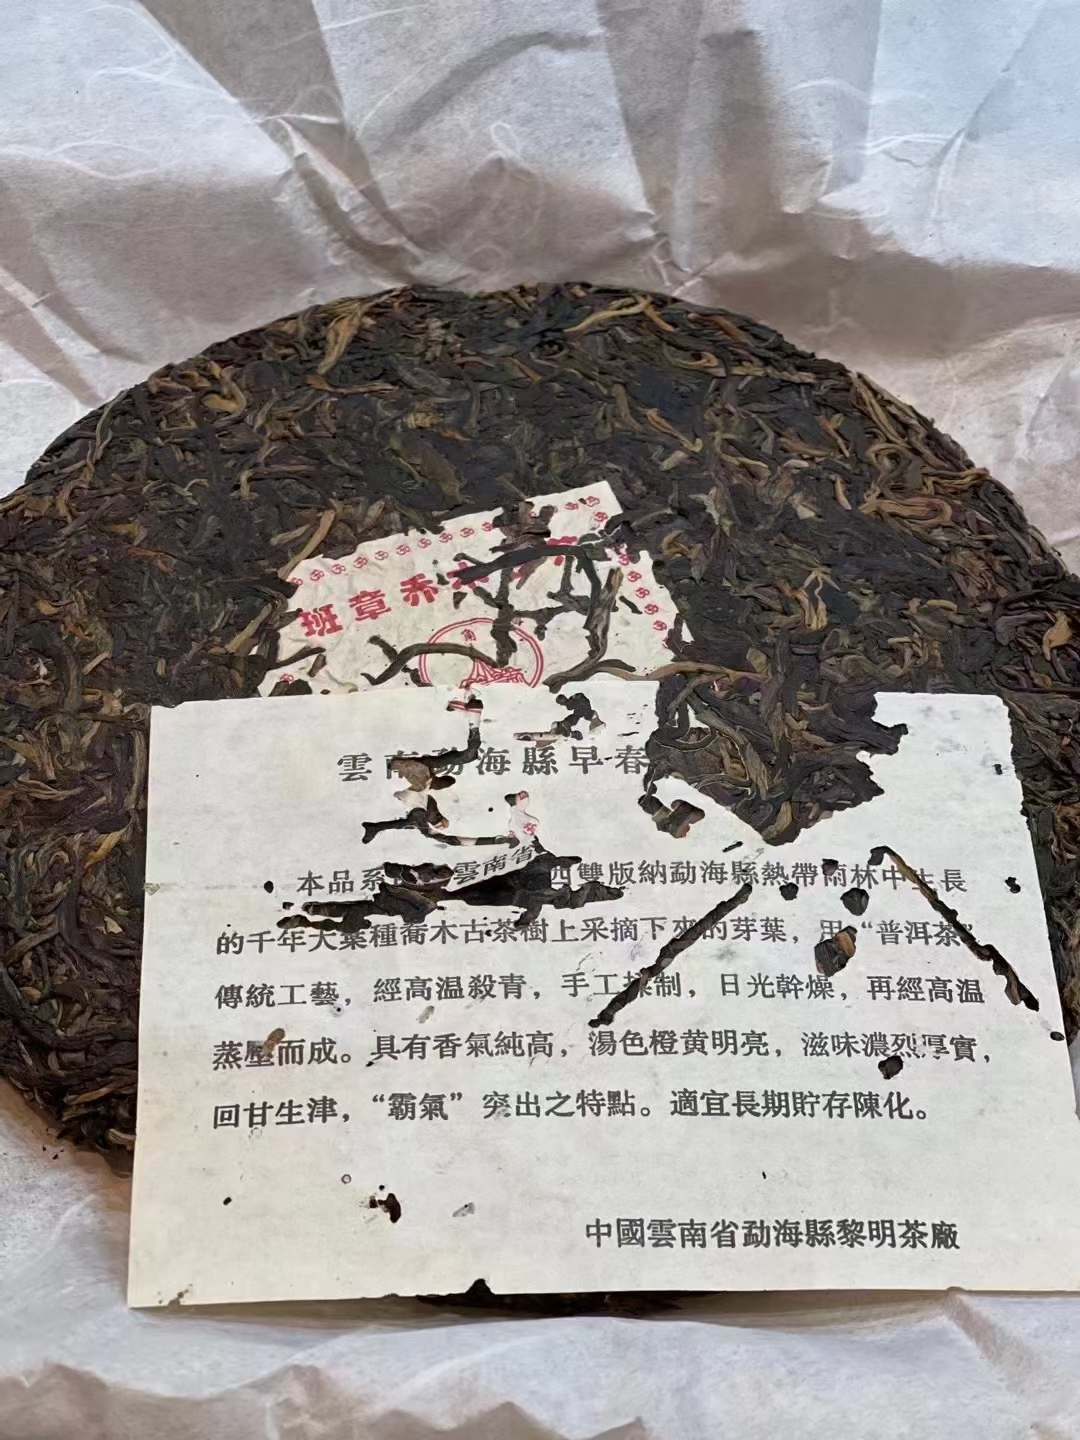 班章乔木
雲南勐海縣早春
本品系 雲南省 四雙版納勐海縣熱帶雨林中生長
的千年大葉種喬木古茶樹上采摘下來的芽葉，用“普洱茶”
傳統工藝，經高温殺青，手工揉制，日光幹燥，再經高温
蒸壓而成。具有香氣純高，湯色橙黄明亮，滋味濃烈厚實，
回甘生津，“霸氣”突出之特點。適宜長期貯存陳化。
中國雲南省勐海縣黎明茶廠